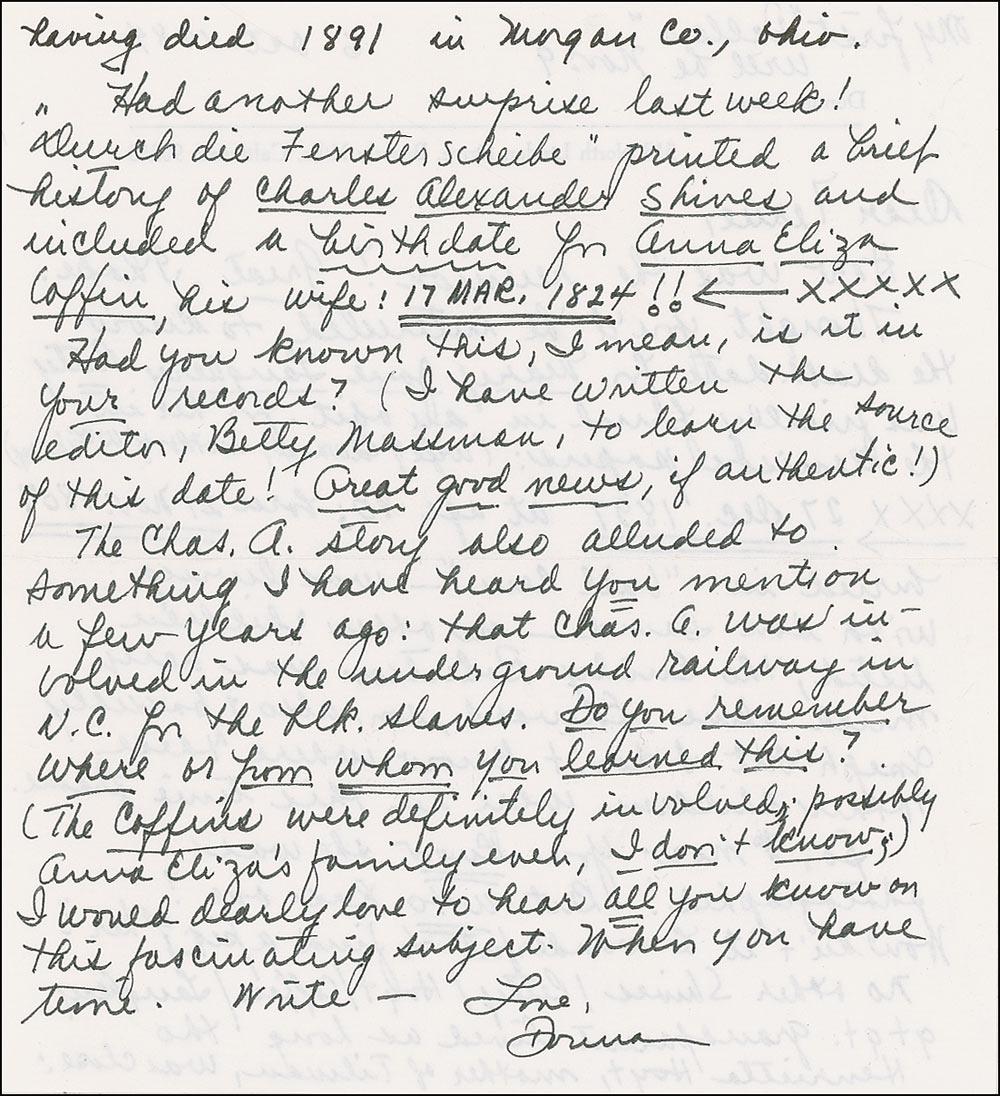 having died 1891 in Morgan Co., Ohio.
Had another surprise last week!
"Durch die Fensterscheibe" printed a brief
history of Charles Alexander Shives and
included a birthdate for Anna Eliza
Coffin, his wife! 17 MAR. 1824 !! ← XXXXX
Had you known this, I mean, is it in
your records? (I have written the
editor, Betty Massman, to learn the source
of this date! Great good news, if authentic!)
The Chas. A. story also alluded to
something I have heard you mention
a few years ago: that Chas. A. was in-
volved in the underground railway in
N.C. for the blk. slaves. Do you remember
where or from whom you learned this?
(The Coffins were definitely involved; possibly
Anna Eliza's family even, I don't know;)
I would dearly love to hear all you know on
this fascinating subject. When you have
time. Write — Love,
Donna